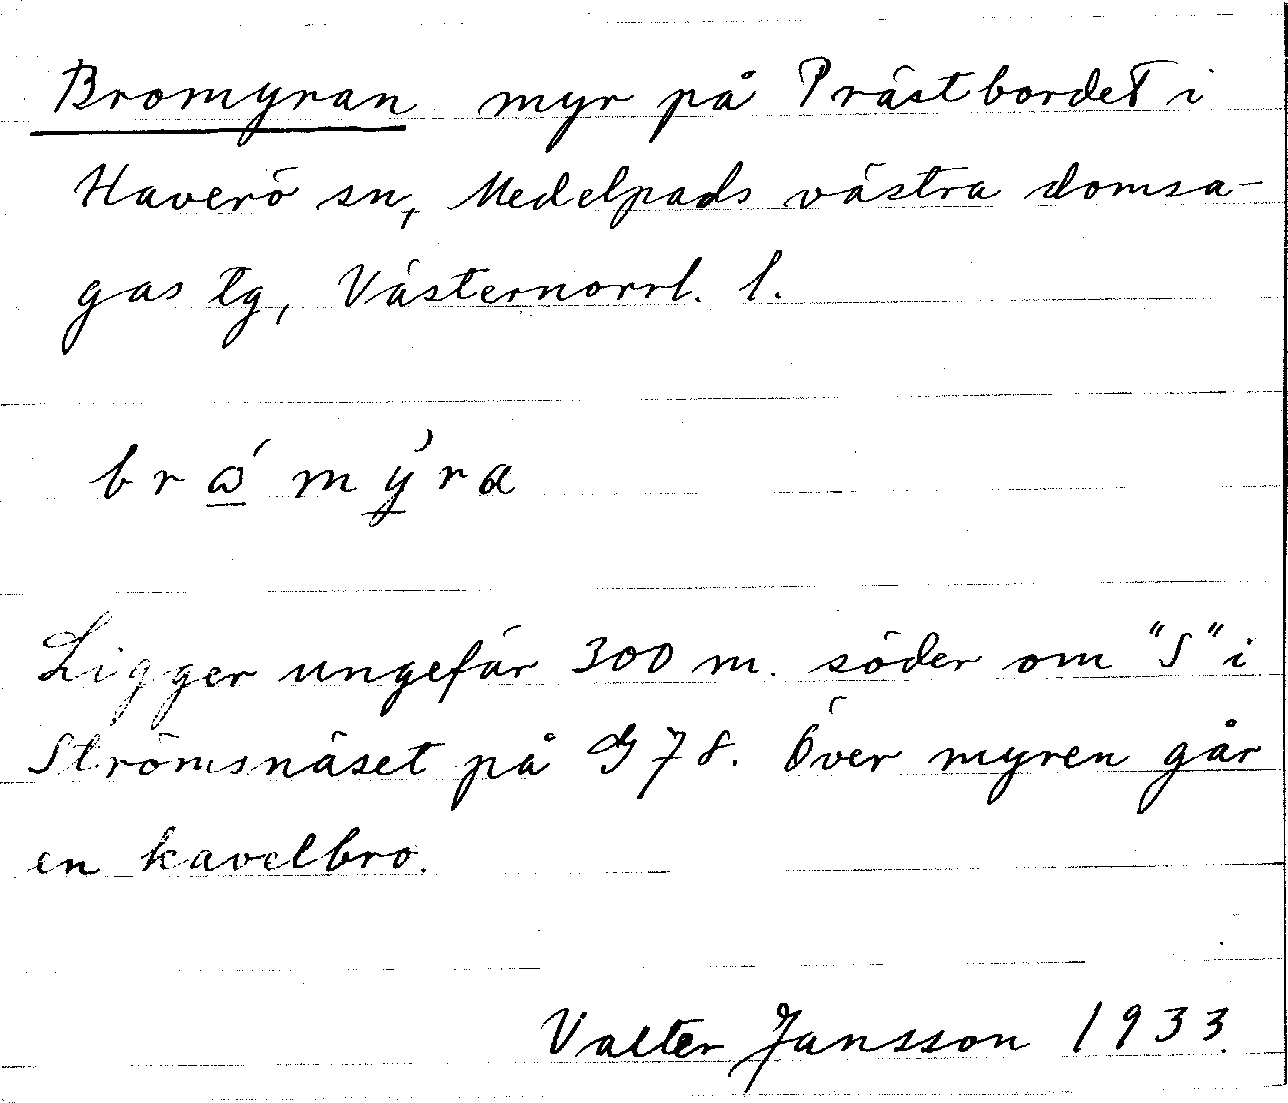 Bromyran myr på Prästbordet i
Haverö sn, Medelpads västra domsa-
gas tg, Västernorrl. l.
brώ̲mỳ̲ra
Ligger ungefär 300 m. söder om "S" i
Strömsnäset på G 78. Över myren går
en kavelbro.
Valter Jansson 1933.